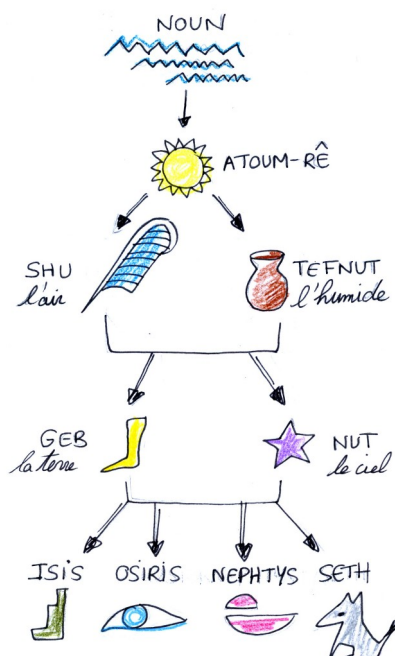 NOUN
ATOUM-RÊ
SHU
l'air
TEFNUT
l'humide
GEB
la terre
NUT
le ciel
ISIS OSIRIS NEPHTYS SETH